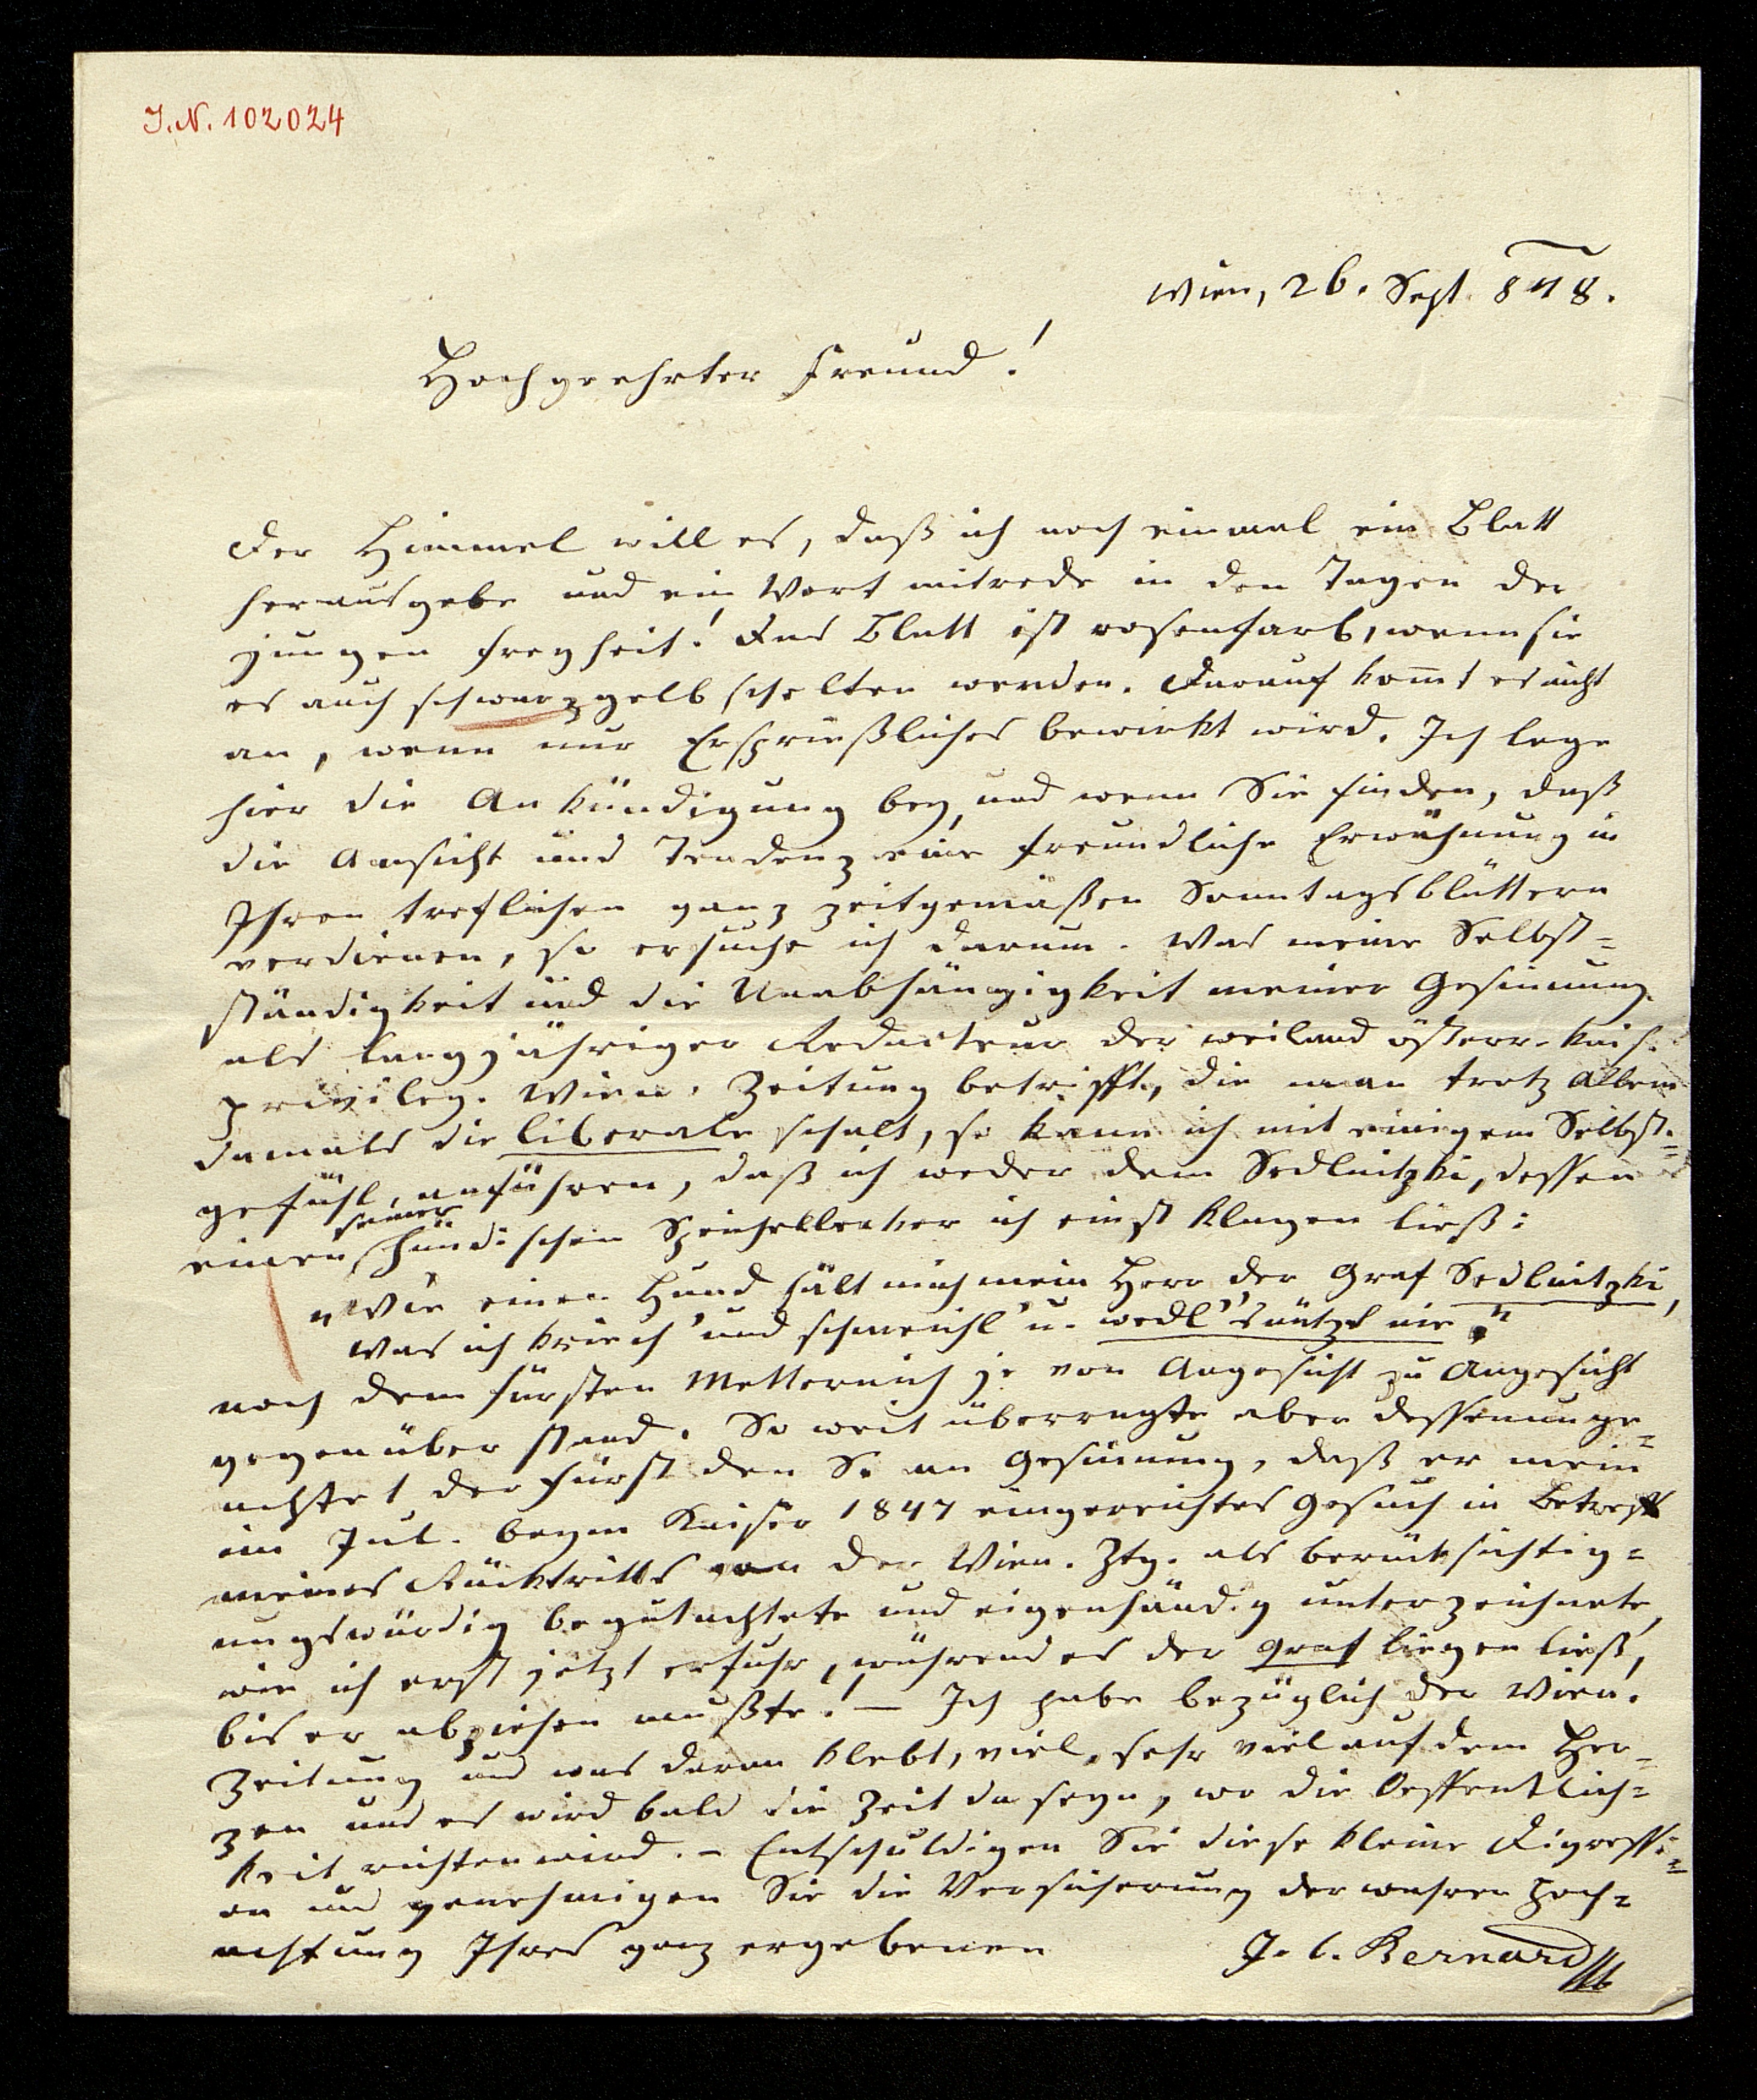 I. N. 102024
Wien, 26. Sept. 848.
Hochgeehrter Freund!
Der Himmel will es, daß ich noch einmal ein Blatt
herausgebe und ein Wort mitrede in den Tagen der
jungen Freyheit! Das Blatt ist rosenfarb, wenn sie
es auch schwarzgelb schelten werden. Darauf kom̅t es nicht
an, wenn nur Ersprießliches bewirkt wird. Ich lege
hier die Ankündigung bey, und wenn Sie finden, daß
die Ansicht und Tendenz eine freundliche Erwähnung in
Ihren treflichen ganz zeitgemäßen Sonntagsblättern
verdienen, so ersuche ich darum. Was meine Selbst=
ständigkeit und die Unabhängigkeit meiner Gesinnung
als langjähriger Redacteur der weiland österr. kais.
privileg. Wien. Zeitung betrifft, die man trotz Allem
damals die liberale schalt, so kann ich mit einigem Selbst=
gefühl anführen, daß ich weder dem Sedlnitzki, dessen
einen seiner hündischen Speichellecker ich einst klagen ließ:
"Wie einen Hund hält mich mein Herr der Graf Sedlnitzki,
Was ich kriech' und schmeichl' u. wedl' 's nützt nie."
noch dem Fürsten Metternich je von Angesicht zu Angesicht
gegenüber stand. So weit überragte aber dessenunge=
achtet der Fürst den S. an Gesinnung, daß er mein
im Jul. beym Kaiser 1847 eingereichtes Gesuch in Betreff
meines Rücktritts von der Wien. Ztg. als berücksichtig=
ungswürdig begutachtete und eigenhändig unterzeichnete,
wie ich erst jetzt erfuhr, während es der Graf liegen ließ,
bis er abziehen mußte! — Ich habe bezüglich der Wien.
Zeitung und was daran klebt, viel, sehr viel auf dem Her=
zen und es wird bald die Zeit da seyn, wo die Oeffentlich=
keit richten wird. – Entschuldigen Sie diese kleine Digressi=
on und genehmigen Sie die Versicherung der wahren Hoch=
achtung Ihres ganz ergebenen
J. C. Bernard